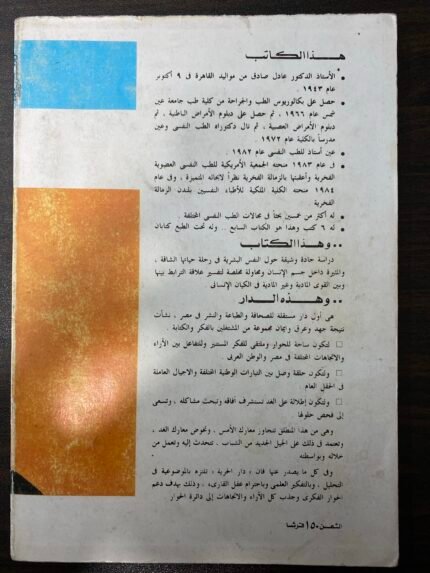 هـذا الكاتب
• الأستاذ الدكتور عادل صادق من مواليد القاهرة فى ٩ أكتوبر
عام ١٩٤٣ .
• حصل على بكالوريوس الطب والجراحة من كلية طب جامعة عين
شمس عام ١٩٦٦ ، ثم حصل على دبلوم الأمراض الباطنية ، ثم
دبلوم الأمراض العصبية ، ثم نال دكتوراه الطب النفسى وعين
مدرساً بالكلية عام ١٩٧٢
• عين أستاذ للطب النفسى عام ١٩٨٢ .
• فى عام ١٩٨٣ منحته الجمعية الأمريكية للطب النفسى العضوية
الفخرية وأعقبتها بالزمالة الفخرية نظراً لأبحاثه المتميزة ، وفى عام
١٩٨٤ منحته الكلية الملكية للأطباء النفسيين بلندن الزمالة
الفخرية .
• له أكثر من خمسين بحثاً فى مجالات الطب النفسى المختلفة .
• له ٦ كتب وهذا هو الكتاب السابع .. وله تحت الطبع كتابان
.. وهـذا الكتاب
دراسة جادة وشيقة حول النفس البشرية فى رحلة حياتها الشاقة ،
والمثيرة داخل جسم الإنسان ومحاولة مخلصة لتفسير علاقة الترابط بينها
وبين القوى المادية وغير المادية فى الكيان الإنسانى
.. وهـذه الـدار
هى أول دار مستقلة للصحافة والطباعة والنشر فى مصر ، نشأت
نتيجة جهد وعرق وإيمان مجموعة من المشتغلين بالفكر والكتابة .
□ لتكون ساحة للحوار وملتقى للفكر المستنير وللتفاعل بين الآراء
والاتجاهات المختلفة فى مصر والوطن العربى .
□ ولتكون حلقة وصل بين التيارات الوطنية المختلفة والأجيال العاملة
فى الحقل العام .
□ ولتكون إطلالة على الغد تستشرف آفاقه وتبحث مشاكله ، وتسعى
إلى فحص حلولها
وهى من هذا المنطلق تتجاوز معارك الأمس ، وتخوض معارك الغد ،
وتعتمد فى ذلك على الجيل الجديد من الشباب . تتحدث إليه وتعمل من
خلاله وبواسطته
وفى كل ما يصدر عنها فإن « دار الحرية » تلتزم بالموضوعية فى
التحليل ، وبالتفكير العلمى وباحترام عقل القارىء ، وذلك بهدف دعم
الحوار الفكرى وجذب كل الآراء والاتجاهات إلى دائرة الحوار
الثمـن ١٥٠ قرشا